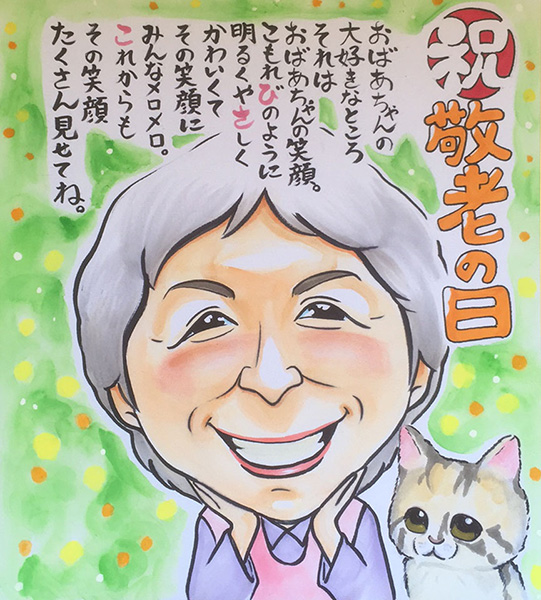 祝
敬老の日
おばあちゃんの
大好きなところ
それは
おばあちゃんの笑顔。
ともれびのように
明るくやさしく
かわいくて
その笑顔に
みんなメロメロ。
これからも
その笑顔
たくさん見せてね。